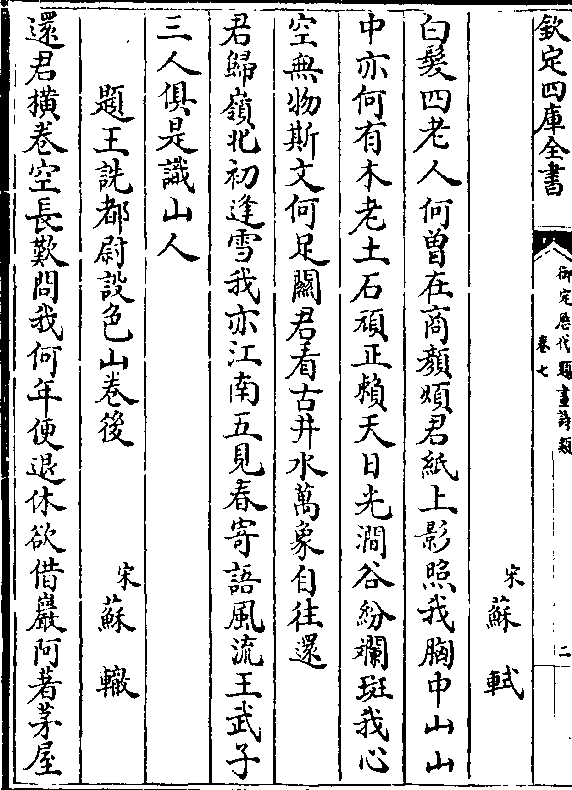 欽定四庫全書
御定歷代題畫詩類
卷七
二
宋蘇軾
白髮四老人何曽在商顏煩君紙上影照我胸中山山
中亦何有木老土石頑正賴天日光澗谷紛斕斑我心
空無物斯文何足關君看古井水萬象自往還
君歸嶺北初逢雪我亦江南五見春寄語風流王武子
三人俱是識山人
題王詵都尉設色山卷後
宋蘇轍
還君横卷空長歎問我何年便退休欲借巖阿著茅屋